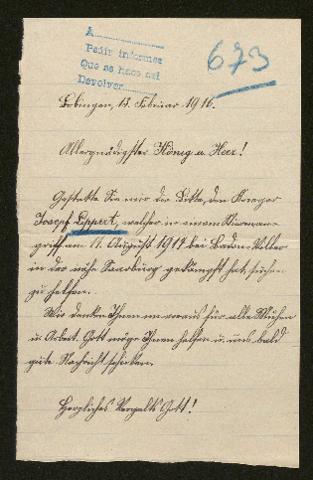 A
Pedir informes
Que se hace así
Devolver
673
Bobingen, 13. Februar 1916.
Allergnädigster König u. Herr!
Gestatte Sie mir die Bitte, den Krieger
Josef Lippert, welcher in einem Sturman-
griff am 11. August 1914 bei Badonviller
in der nähe Saarburg gekämpft hat, suchen
zu helfen.
Wir danken Ihnen im voraus für alle Mühen
u. Arbeit. Gott möge Ihnen helfen u. uns bald
gute Nachricht schicken.
Herzliches Vergelts Gott!